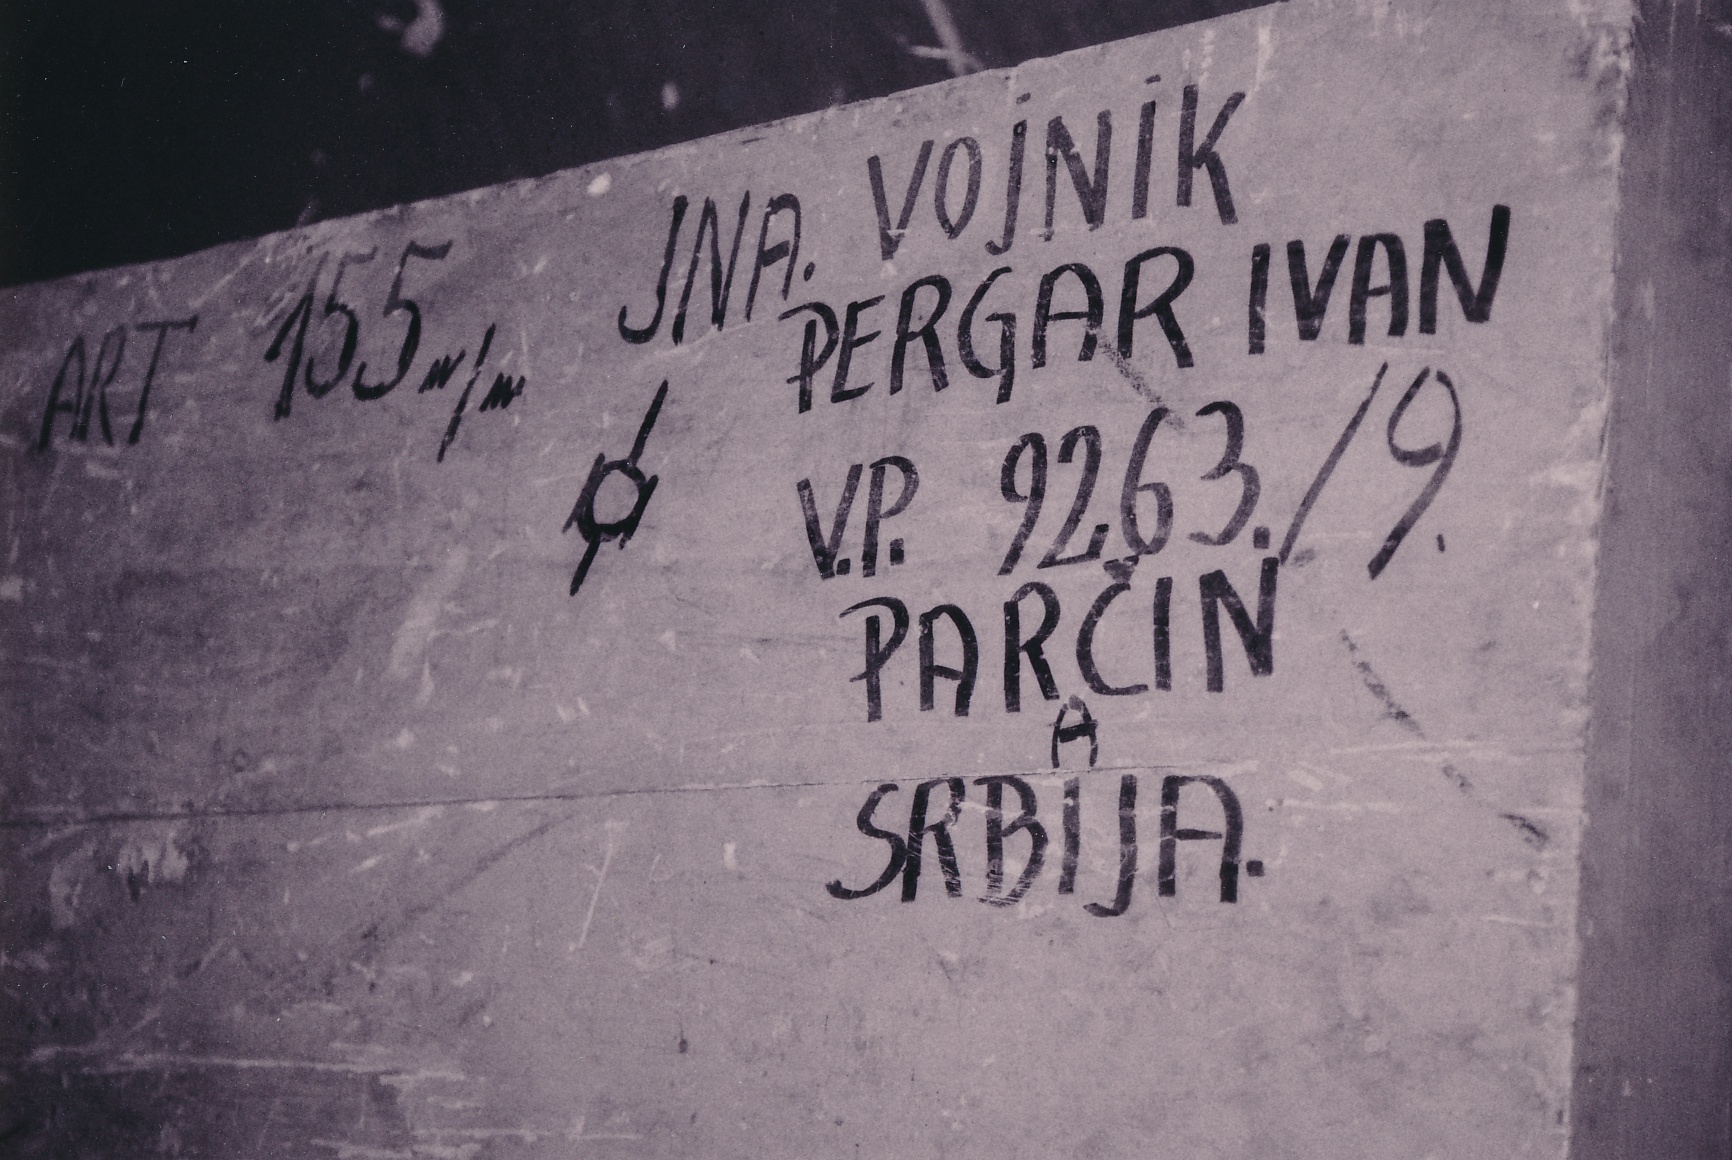 ART 155 m/m
JNA. VOJNIK
PERGAR IVAN
V.P. 9263./9.
PARČIN
A
SRBIJA.